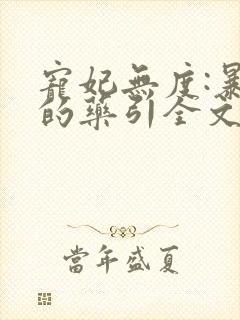 寵妃無度:暴
的藥引全文
當年盛夏